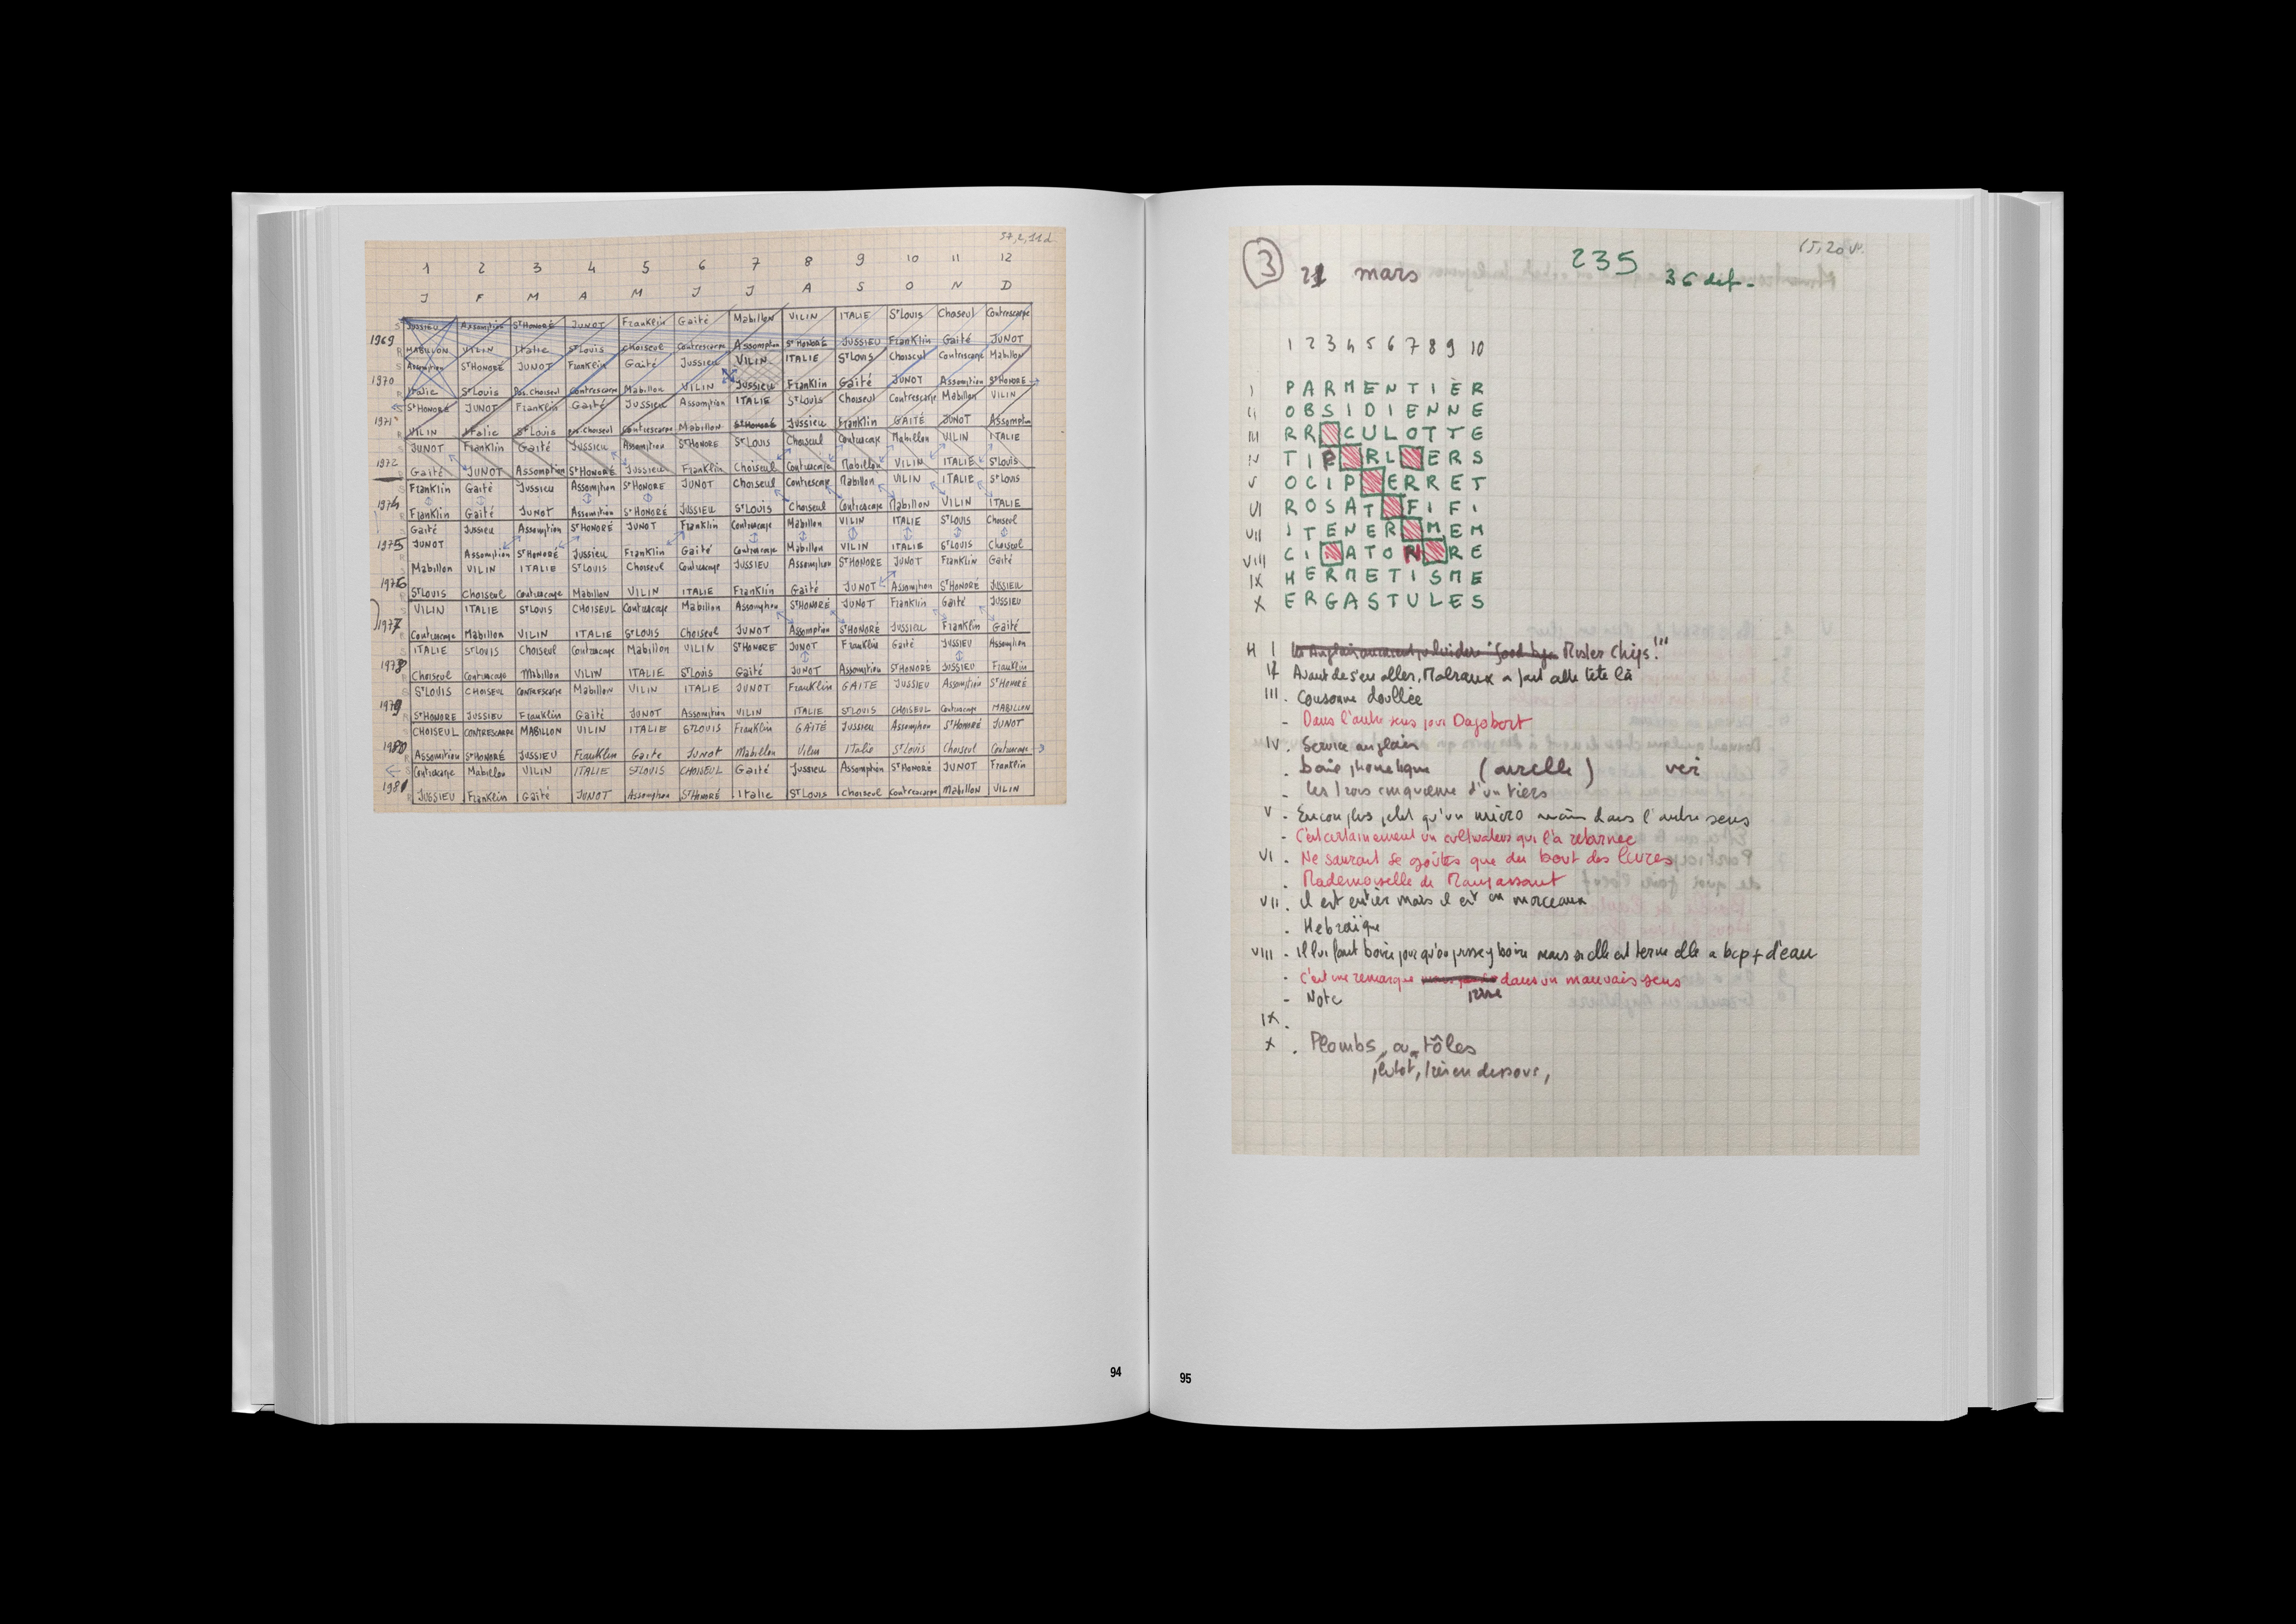 57,2,11d
1 2 3 4 5 6 7 8 9 10 11 12
J F M A M J J A S O N D
S JUSSIEU Assomption St HONORÉ JUNOT Franklin Gaité Mabillon VILIN ITALIE St Louis Choiseul Contrescarpe
1969
R MABILLON VILIN Italie St Louis Choiseul Contrescarpe Assomption St HONORÉ JUSSIEU Franklin Gaité JUNOT
S Assomption St HONORÉ JUNOT Franklin Gaité Jussieu VILIN ITALIE St Louis Choiseul Contrescarpe Mabillon
1970
R Italie St Louis Pas. Choiseul Contrescarpe Mabillon VILIN Jussieu Franklin Gaité JUNOT Assomption St HONORÉ
St HONORÉ JUNOT Franklin Gaité Jussieu Assomption ITALIE St Louis Choiseul Contrescarpe Mabillon VILIN
1971
R VILIN Italie St Louis pas. Choiseul Contrescarpe Mabillon St Honoré Jussieu Franklin GAITÉ JUNOT Assomption
JUNOT Franklin Gaité Jussieu Assomption St HONORE St LOUIS Choiseul Contrescarpe Mabillon VILIN ITALIE
1972
Gaité JUNOT Assomption St HONORÉ Jussieu Franklin Choiseul Contrescarpe Mabillon VILIN ITALIE St Louis
S Franklin Gaité Jussieu Assomption St HONORÉ JUNOT Choiseul Contrescarpe Mabillon VILIN ITALIE St LOUIS
1974
R Franklin Gaité JUNOT Assomption St HONORÉ JUSSIEU St LOUIS Choiseul Contrescarpe Mabillon VILIN ITALIE
S Gaité Jussieu Assomption St HONORÉ JUNOT Franklin Contrescarpe Mabillon VILIN ITALIE St LOUIS Choiseul
1975
R JUNOT Assomption St HONORÉ Jussieu Franklin Gaité Contrescarpe Mabillon VILIN ITALIE St LOUIS Choiseul
S Mabillon VILIN ITALIE St LOUIS Choiseul Contrescarpe JUSSIEU Assomption St HONORE JUNOT Franklin Gaité
1976
R St LOUIS Choiseul Contrescarpe Mabillon VILIN ITALIE Franklin Gaité JUNOT Assomption St HONORÉ JUSSIEU
S VILIN ITALIE St LOUIS CHOISEUL Contrescarpe Mabillon Assomption St HONORÉ JUNOT Franklin Gaité JUSSIEU
1977
R Contrescarpe Mabillon VILIN ITALIE St LOUIS Choiseul JUNOT Assomption St HONORÉ Jussieu Franklin Gaité
S ITALIE St LOUIS Choiseul Contrescarpe Mabillon VILIN St HONORE JUNOT Franklin Gaité JUSSIEU Assomption
1978
R Choiseul Contrescarpe Mabillon VILIN ITALIE St Louis Gaité JUNOT Assomption St HONORÉ JUSSIEU Franklin
S St LOUIS CHOISEUL CONTRESCARPE Mabillon VILIN ITALIE JUNOT Franklin GAITE JUSSIEU Assomption St HONORÉ
1979
R St HONORE JUSSIEU Franklin Gaité JUNOT Assomption VILIN ITALIE St LOUIS CHOISEUL Contrescarpe MABILLON
CHOISEUL CONTRESCARPE MABILLON VILIN ITALIE St LOUIS Franklin GAITÉ Jussieu Assomption St HONORÉ JUNOT
1980
R Assomption St HONORÉ JUSSIEU Franklin Gaité JUNOT Mabillon Vilin Italie St Louis Choiseul Contrescarpe
S Contrescarpe Mabillon VILIN ITALIE St LOUIS CHOISEUL Gaité Jussieu Assomption St HONORÉ JUNOT Franklin
1981
R JUSSIEU Franklin Gaité JUNOT Assomption St HONORÉ Italie St Louis Choiseul Contrescarpe Mabillon VILIN
94
3
21 mars
235
36 def-
1 2 3 4 5 6 7 8 9 10
I PARMENTIÈR
II OBSIDIENNE
III RR CULOTTE
IV TIP RL ERS
V OCIP ERRET
VI ROSAT FIFI
VII ITENER MEM
VIII CI ATOR RE
IX HERMETISME
X ERGASTULES
H I "Good bye Mister Chips!"
II Avant de s'en aller, Malraux a fait cette tête là
III . Consonne doublée
- Dans l'autre sens pour Dagobert
IV . Service anglais
. baie phonetique (airelle) ver
- les trois cinquieme d'un tiers
V - Encore plus petit qu'un micro mais dans l'autre sens
- C'est certainement un cultivateur qui l'a retournee
VI . Ne sauraient se goûter que du bout des levres
. Mademoiselle de Maupassant
VII . Il est entier mais il est en morceaux
. Hebraïque
VIII - Il lui faut boire pour qu'on puisse y boire mais si elle est terne elle a bcp + d'eau
- C'est une remarque dans un mauvais sens
- Note
IX .
X . Plombs, ou tôles
plutôt, très en dessous,
95